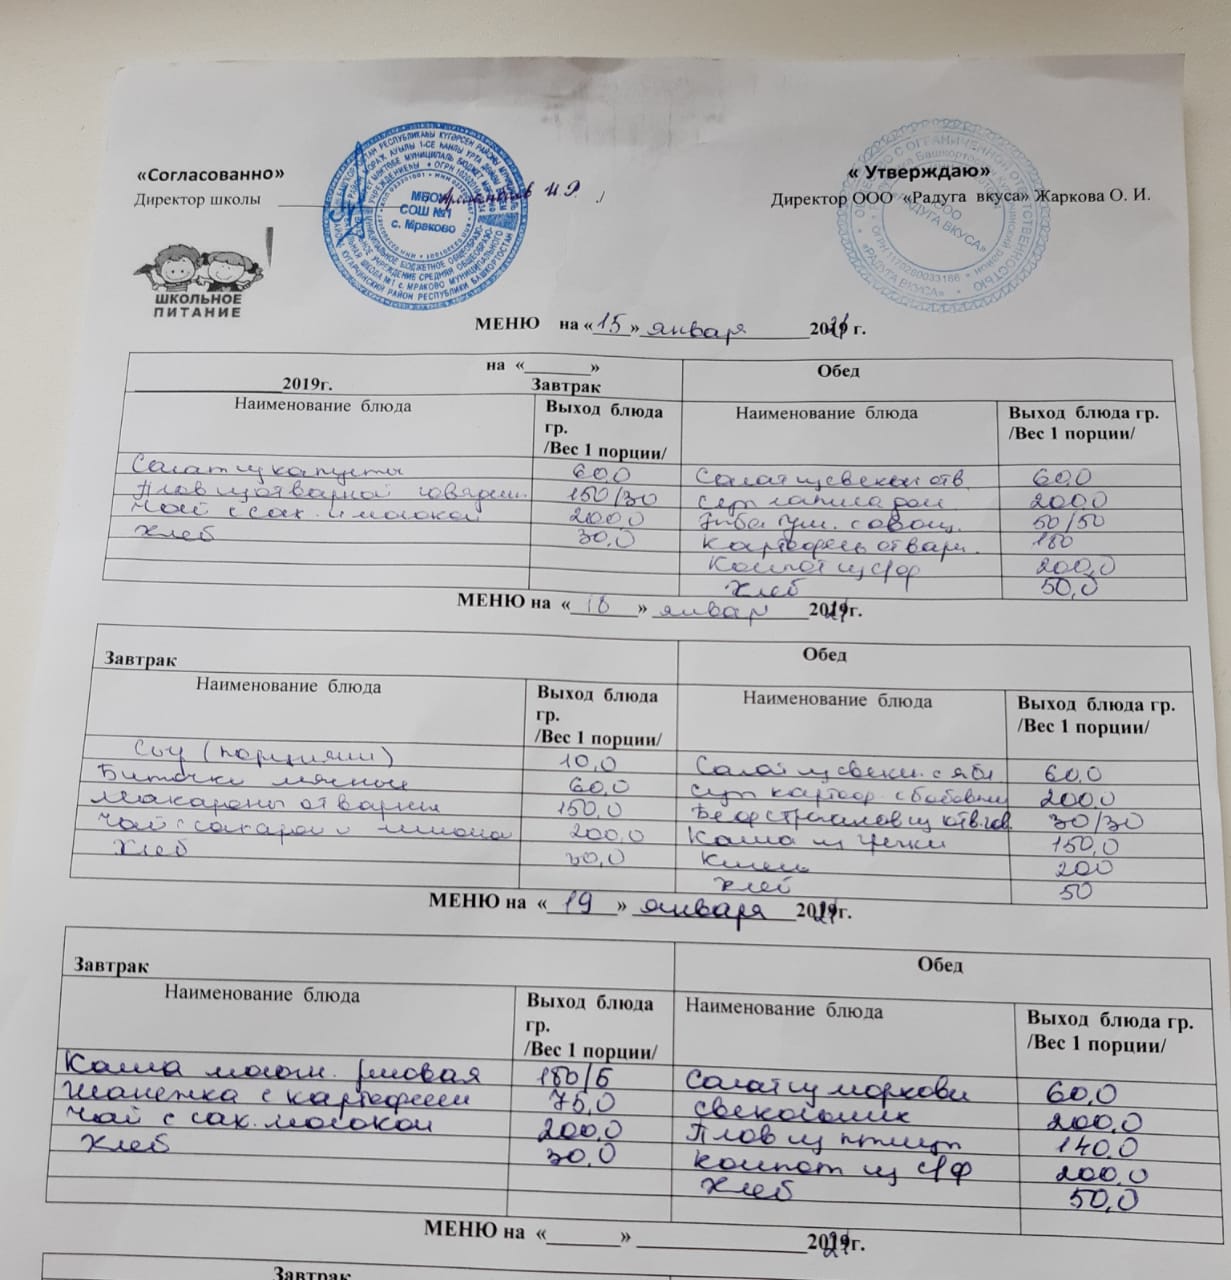 «Согласованно»
Директор школы
МБОУ
СОШ №1
с. Мраково
« Утверждаю»
Директор ООО «Радуга вкуса» Жаркова О. И.
ООО
«РАДУГА ВКУСА»
ШКОЛЬНОЕ
ПИТАНИЕ
МЕНЮ на «15» января 2021 г.
на «_______»
2019г. Завтрак
Обед
Наименование блюда
Выход блюда гр. /Вес 1 порции/
Наименование блюда
Выход блюда гр. /Вес 1 порции/
Салат из капусты 60,0 Салат из свеклы отв 60,0
Плов из отварной говядин. 150/30 Суп лапша дом 200,0
Чай с сах. и молоком 200,0 Рыба туш. с овощ. 50/50
Хлеб 30,0 Картофель отварн. 180
Компот из с/ф 200,0
Хлеб 50,0
МЕНЮ на «18» январ 2021г.
Завтрак
Обед
Наименование блюда
Выход блюда гр. /Вес 1 порции/
Наименование блюда
Выход блюда гр. /Вес 1 порции/
Сыр (порциями) 10,0 Салат из свеклы с ябл 60,0
Биточки мясные 60,0 Суп картоф. с бобовым 200,0
Макароны отварные 150,0 Бефстроганов из отв. гов. 30/30
Чай с сахаром и лимоном 200,0 Каша из гречки 150,0
Хлеб 30,0 Кисель 200
Хлеб 50
МЕНЮ на «19» января 2021г.
Завтрак
Обед
Наименование блюда
Выход блюда гр. /Вес 1 порции/
Наименование блюда
Выход блюда гр. /Вес 1 порции/
Каша молочн. рисовая 180/5 Салат из моркови 60,0
Шанежка с картофелем 75,0 Свекольник 200,0
Чай с сах. молоком 200,0 Плов из птицы 140,0
Хлеб 30,0 Компот из с/ф 200,0
Хлеб 50,0
МЕНЮ на «_______» ________________2021г.
Завтрак